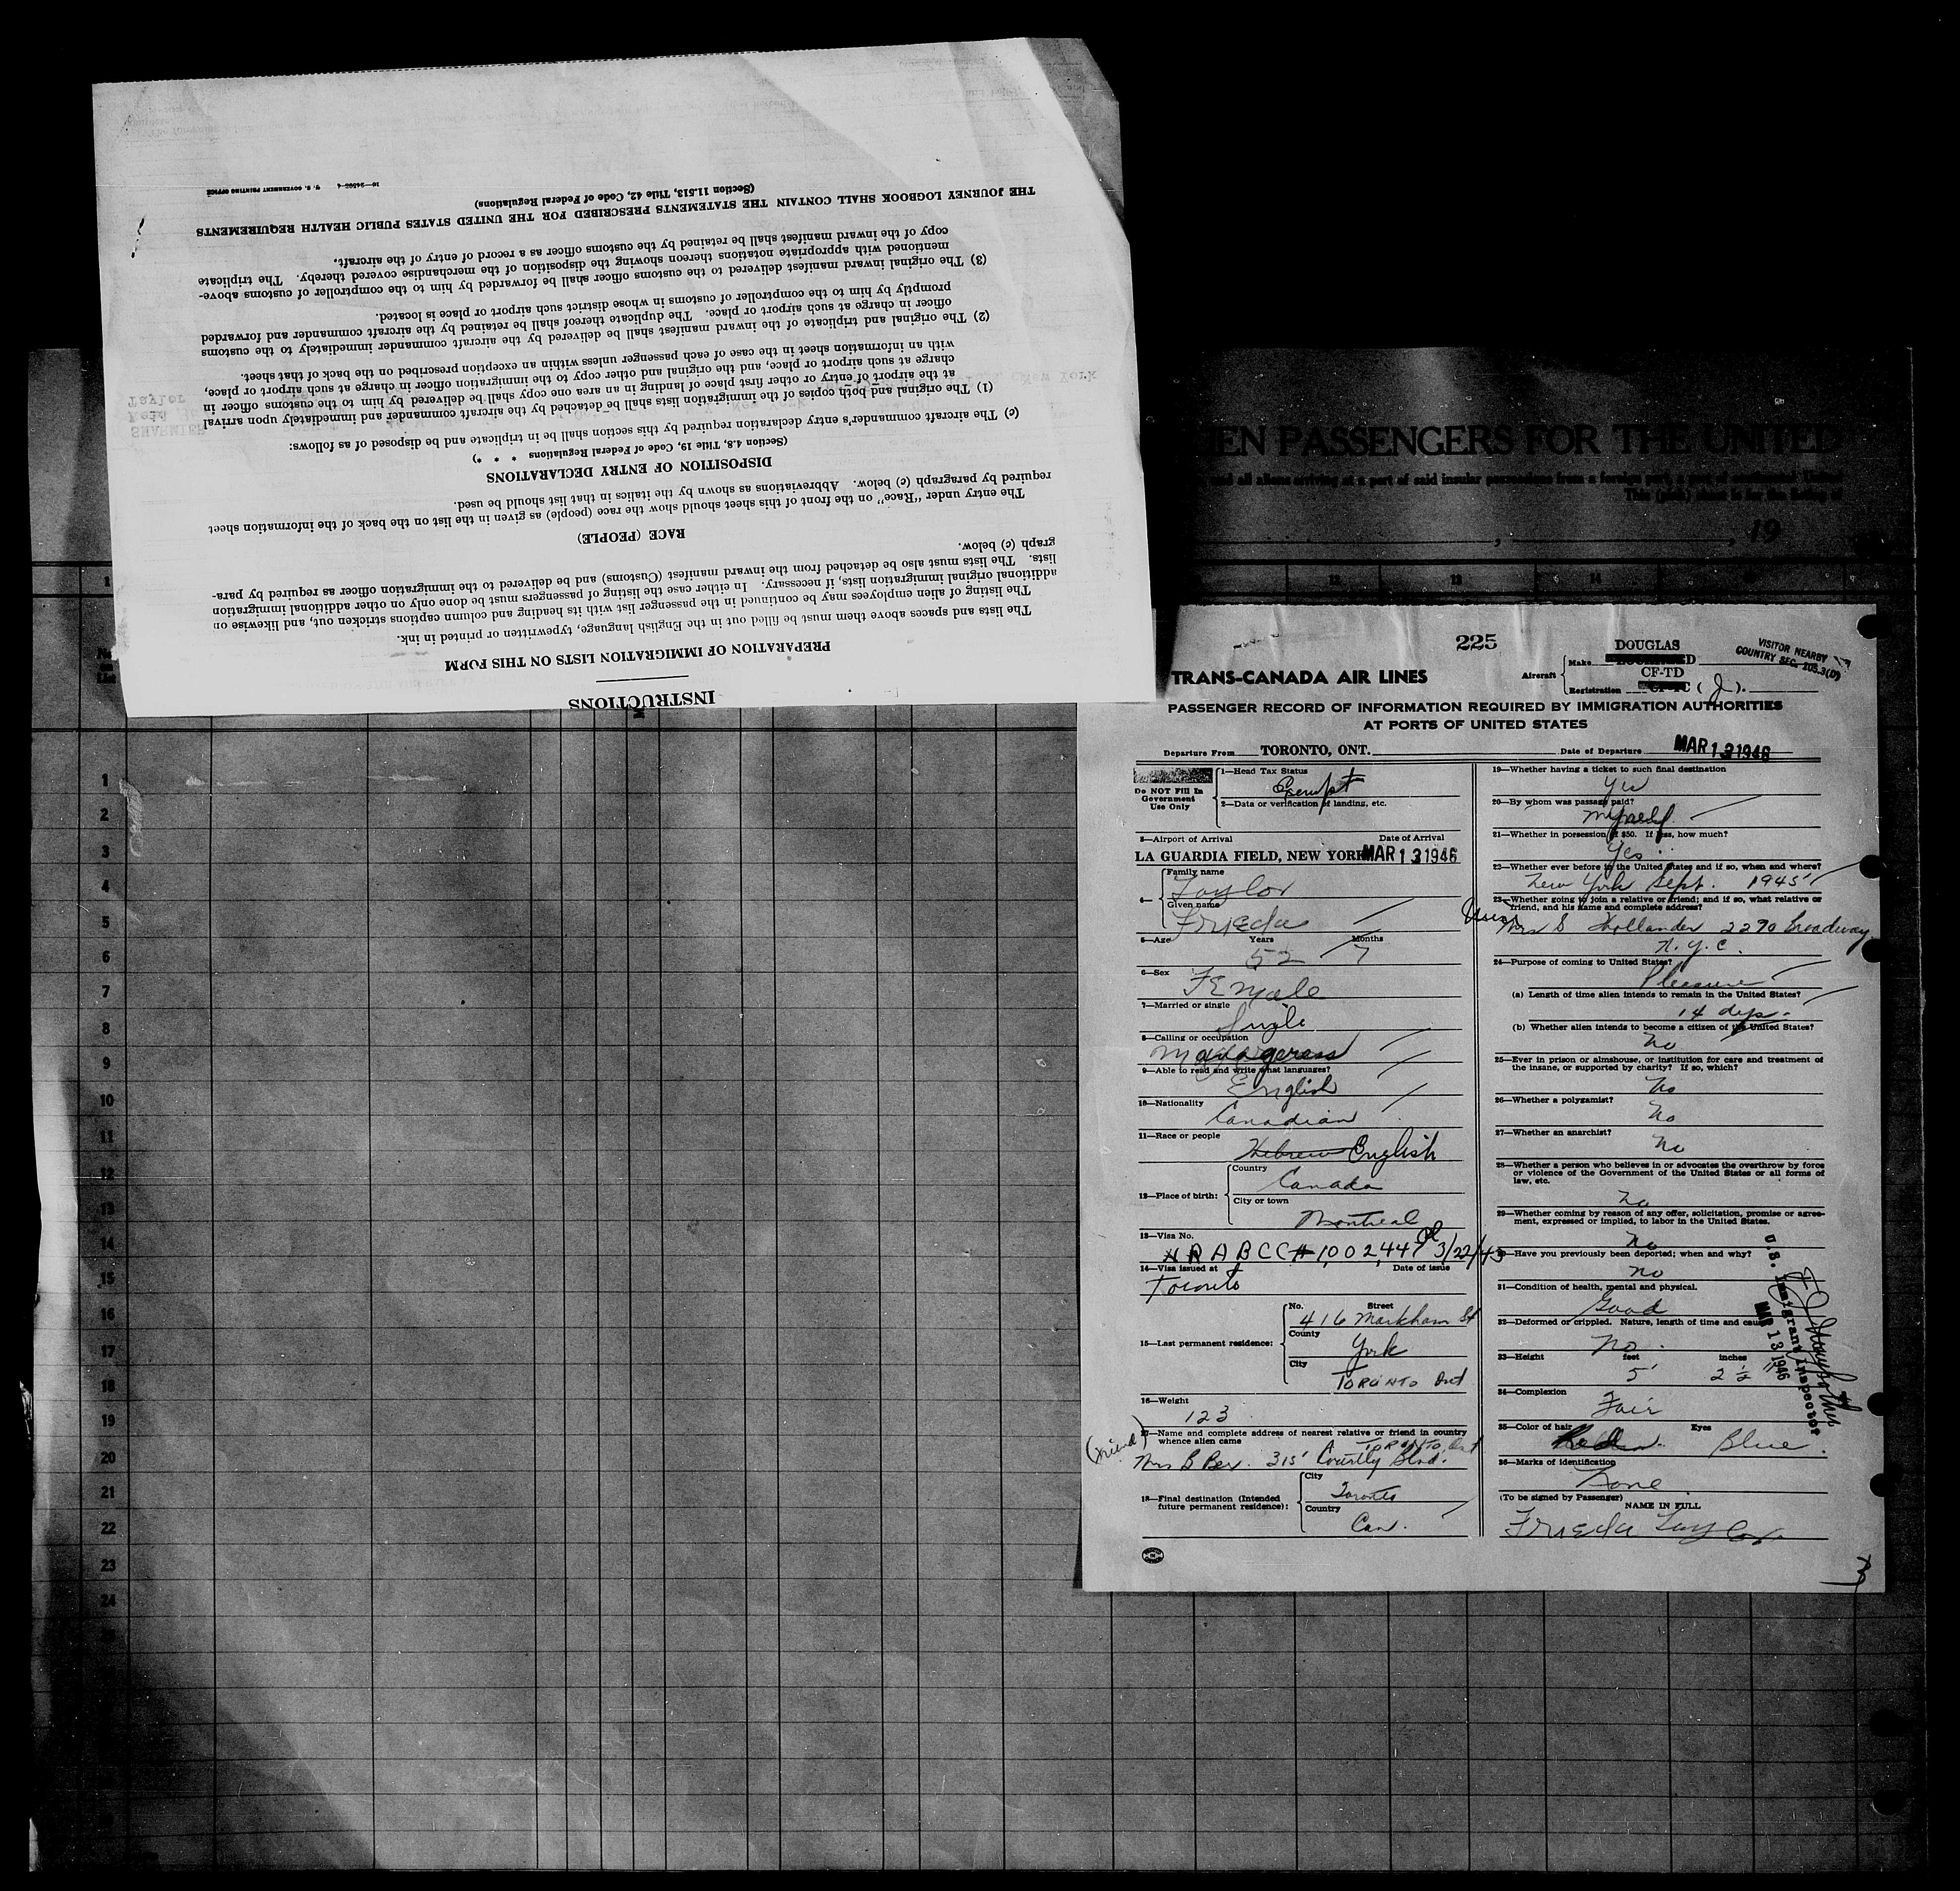 INSTRUCTIONS
PREPARATION OF IMMIGRATION LISTS ON THIS FORM
The lists and spaces above them must be filled out in the English language, typewritten or printed in ink.
The listing of alien employees may be continued in the passenger list with its heading and column captions stricken out, and likewise on
additional original immigration lists, if necessary. In either case the listing of passengers must be done only on other additional immigration
lists. The lists must also be detached from the inward manifest (Customs) and be delivered to the immigration officer as required by para-
graph (c) below.
RACE (PEOPLE)
The entry under "Race" on the front of this sheet should show the race (people) as given in the list on the back of the information sheet
required by paragraph (c) below. Abbreviations as shown by the italics in that list should be used.
DISPOSITION OF ENTRY DECLARATIONS
(Section 4.8, Title 19, Code of Federal Regulations * * *)
(c) The aircraft commander's entry declaration required by this section shall be in triplicate and be disposed of as follows:
(1) The original and both copies of the immigration lists shall be detached by the aircraft commander and immediately upon arrival
at the airport of entry or other first place of landing in an area one copy shall be delivered by him to the customs officer in
charge at such airport or place, and the original and other copy to the immigration officer in charge at such airport or place,
with an information sheet in the case of each passenger unless within an exception prescribed on the back of that sheet.
(2) The original and triplicate of the inward manifest shall be delivered by the aircraft commander immediately to the customs
officer in charge at such airport or place. The duplicate thereof shall be retained by the aircraft commander and forwarded
promptly by him to the comptroller of customs in whose district such airport or place is located.
(3) The original inward manifest delivered to the customs officer shall be forwarded by him to the comptroller of customs above-
mentioned with appropriate notations thereon showing the disposition of the merchandise covered thereby. The triplicate
copy of the inward manifest shall be retained by the customs officer as a record of entry of the aircraft.
THE JOURNEY LOGBOOK SHALL CONTAIN THE STATEMENTS PRESCRIBED FOR THE UNITED STATES PUBLIC HEALTH REQUIREMENTS
(Section 11.513, Title 42, Code of Federal Regulations)
16—24505-4 U. S. GOVERNMENT PRINTING OFFICE
EN PASSENGERS FOR THE UNITED
and all aliens arriving at a port of said insular possessions from a foreign port, a port of continental United
This (pink) sheet is for the listing of
, 19
12 13 14
225
DOUGLAS
VISITOR NEARBY
COUNTRY SEC. 105.3(D)
TRANS-CANADA AIR LINES
Aircraft Make
CF-TD
Registration CF-TC (J).
PASSENGER RECORD OF INFORMATION REQUIRED BY IMMIGRATION AUTHORITIES
AT PORTS OF UNITED STATES
Departure From TORONTO, ONT. Date of Departure MAR 13 1946
Do NOT Fill In
Government
Use Only
1—Head Tax Status
Exempt
2—Data or verification of landing, etc.
3—Airport of Arrival Date of Arrival
LA GUARDIA FIELD, NEW YORK MAR 13 1946
4— Family name
Taylor
Given name
Frieda
5—Age Years Months
52 7
6—Sex
Female
7—Married or single
Single
8—Calling or occupation
Manageress
9—Able to read and write what languages?
English
10—Nationality
Canadian
11—Race or people
Hebrew English
12—Place of birth: Country
Canada
City or town
Montreal
13—Visa No.
RABCC# 1,002,447 3/22/43
14—Visa issued at Date of issue
Toronto
15—Last permanent residence: No. Street
416 Markham St
County
York
City
TORONTO Ont
16—Weight
123
17—Name and complete address of nearest relative or friend in country
whence alien came
TORONTO, Ont
(friend) Mrs B Bex. 315
18—Final destination (Intended
future permanent residence): City
Toronto
Country
Can.
19—Whether having a ticket to such final destination
Yes
20—By whom was passage paid?
Myself.
21—Whether in possession of $50. If less, how much?
Yes
22—Whether ever before in the United States and if so, when and where?
New York Sept. 1945
23—Whether going to join a relative or friend; and if so, what relative or
friend, and his name and complete address?
Mrs S Hollander 2290 Broadway
N.Y.C.
24—Purpose of coming to United States?
Pleasure
(a) Length of time alien intends to remain in the United States?
14 days.
(b) Whether alien intends to become a citizen of the United States?
No
25—Ever in prison or almshouse, or institution for care and treatment of
the insane, or supported by charity? If so, which?
No
26—Whether a polygamist?
No
27—Whether an anarchist?
No
28—Whether a person who believes in or advocates the overthrow by force
or violence of the Government of the United States or all forms of
law, etc.
No
29—Whether coming by reason of any offer, solicitation, promise or agree-
ment, expressed or implied, to labor in the United States.
No
30—Have you previously been deported; when and why?
No
31—Condition of health, mental and physical.
Good
32—Deformed or crippled. Nature, length of time and cause
No.
33—Height feet inches
5' 2 ½"
34—Complexion
Fair
35—Color of hair Eyes
Blue.
36—Marks of identification
None
(To be signed by Passenger)
NAME IN FULL
Frieda Taylor
U.S. Immigrant Inspector
MAR 13 1946
3
1
2
3
4
5
6
7
8
9
10
11
12
13
14
15
16
17
18
19
20
21
22
23
24